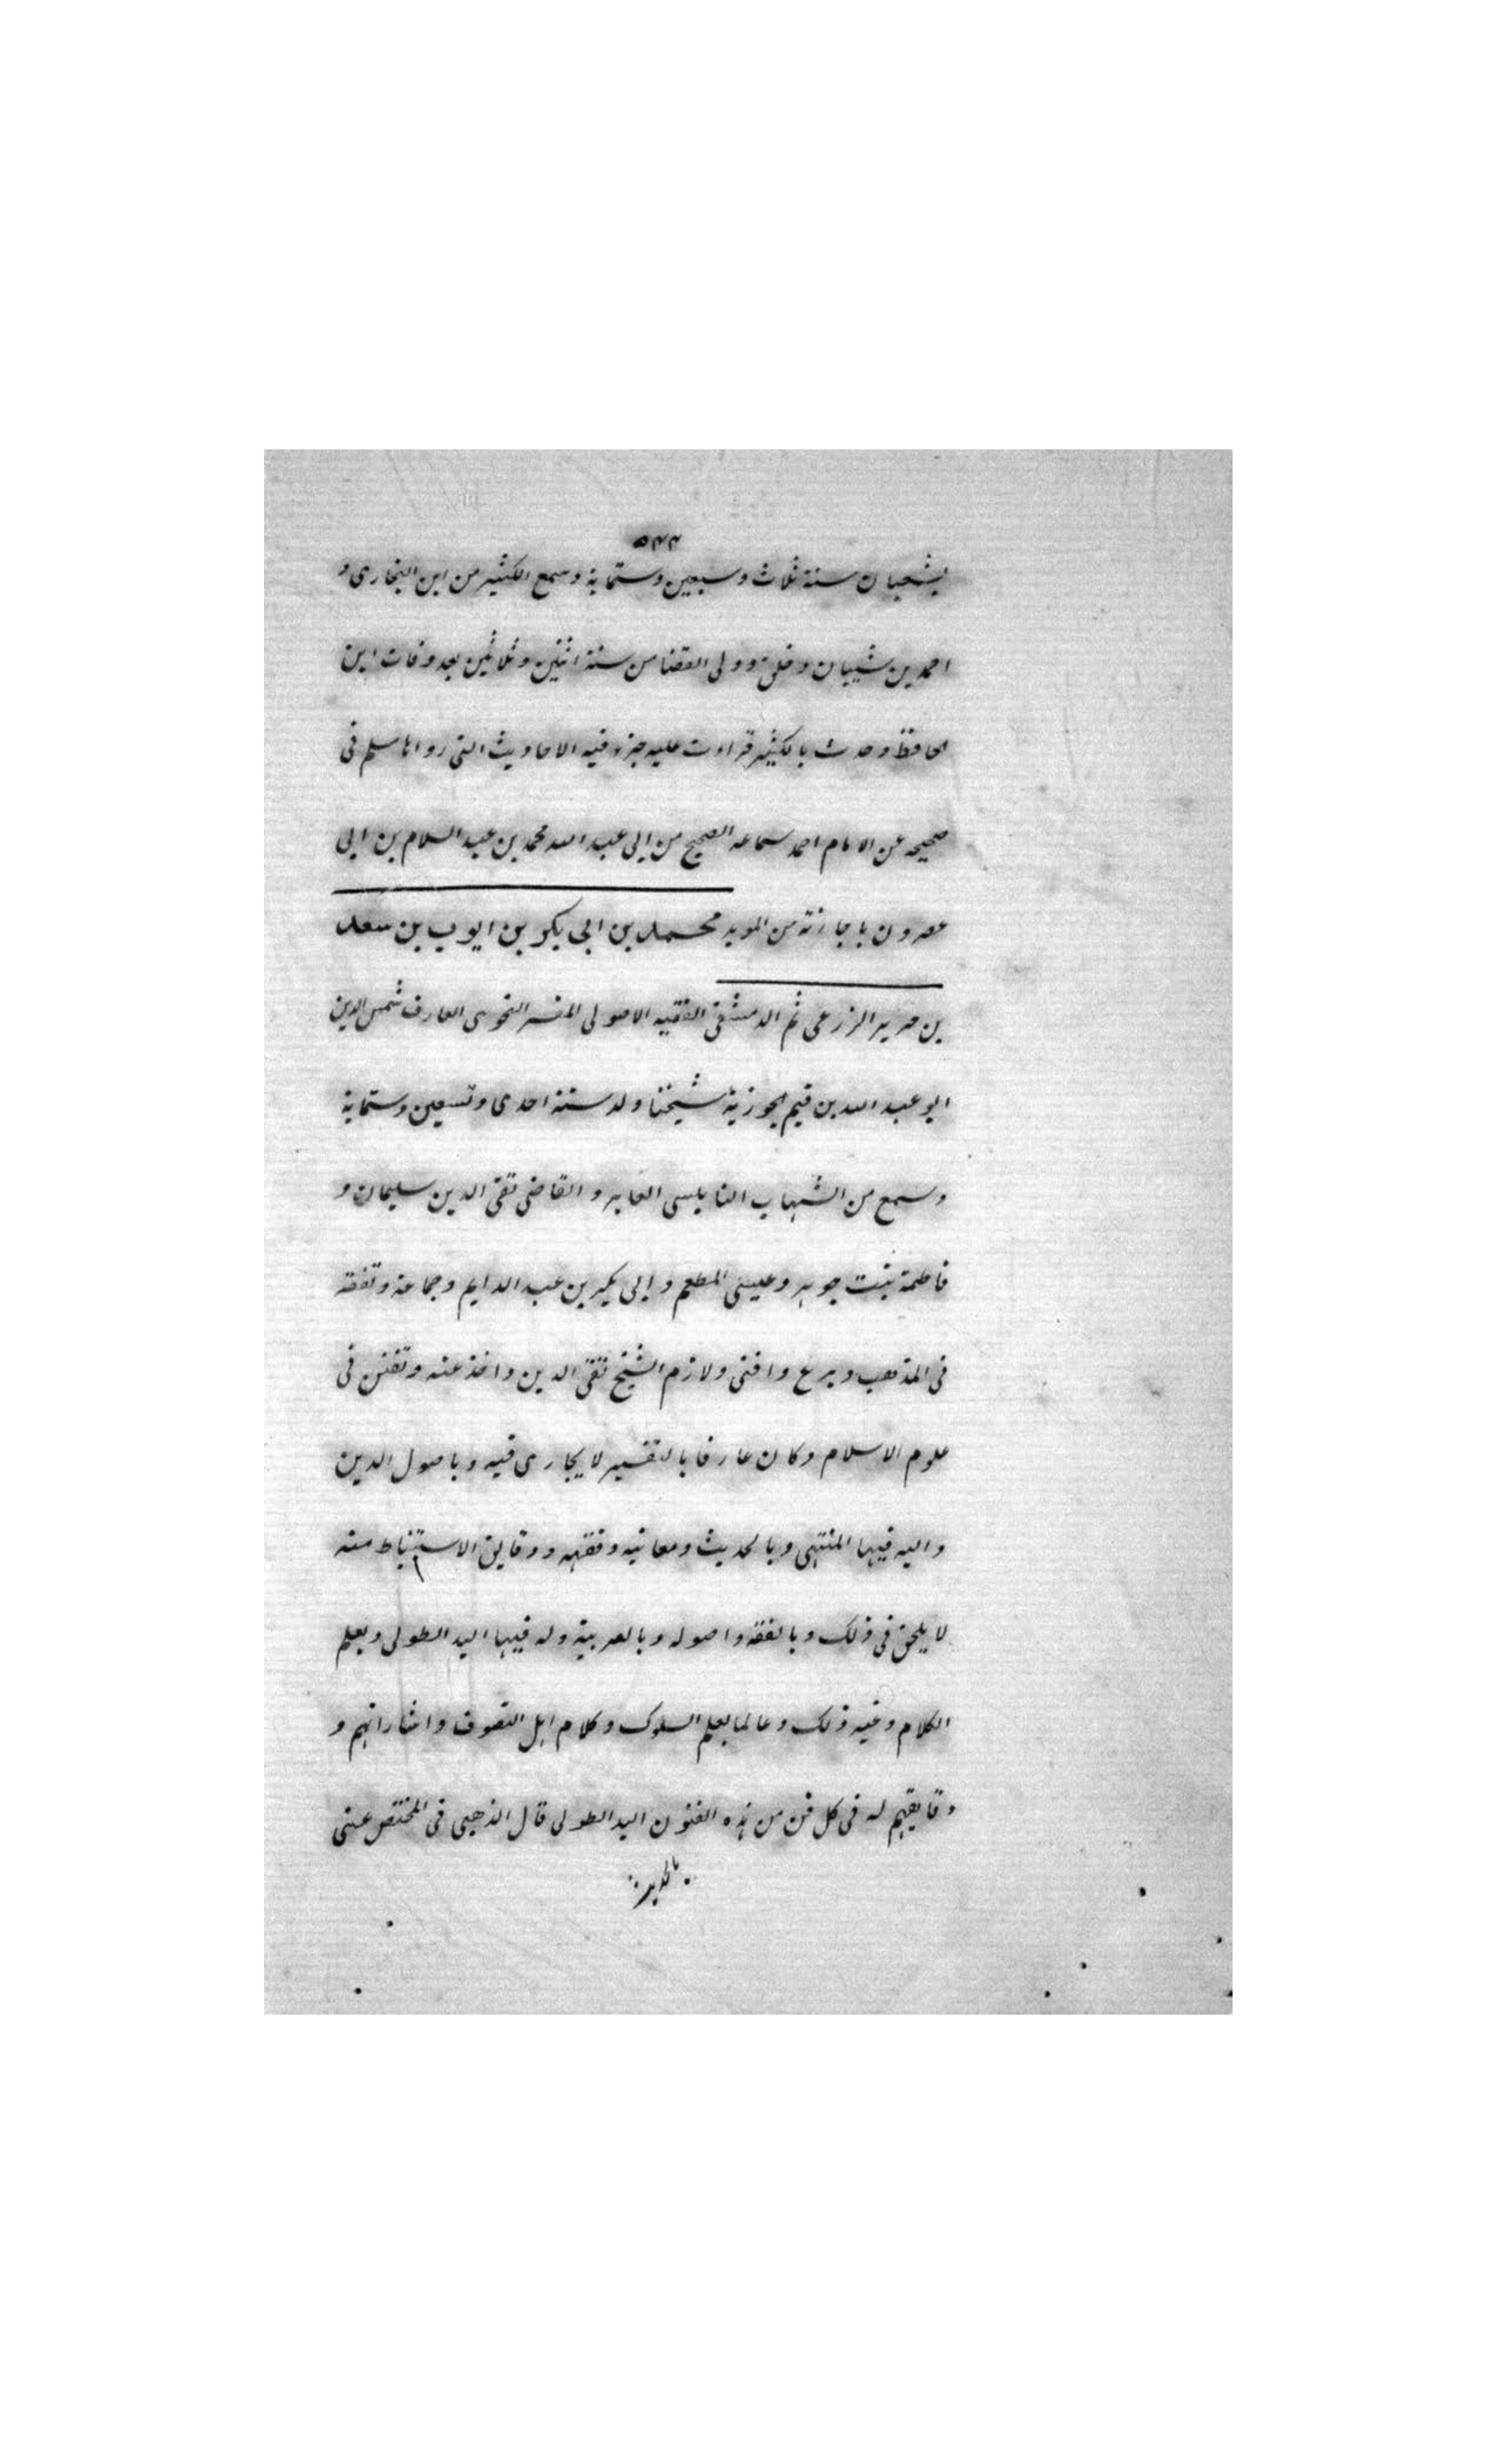 ٥٣٣
بشعبان سنة ثلاث وسبعين وستماية وسمع الكثير من ابن البخارى و
احمد بن شيبان وخلق وولى القضا من سنة اثنين وثلاثين بعد وفات ابن
الحافظ وحدث بالكثير قراءت عليه جزء فيه الاحاديث التى رواها مسلم فى
صحيحه عن الامام احمد سماعه الصحيح من ابى عبد الله محمد بن عبد السلام بن ابى
عصرون باجازته من المويد محمد بن ابى بكر بن ايوب بن سعد
بن حرير الزرعى ثم الدمشقى الفقيه الاصولى المفسر النحوى العارف شمس الدين
ابو عبد الله بن قيم الجوزية شيخنا ولد سنة احدى وتسعين وستماية
وسمع من الشهاب النابلسى العابر والقاضى تقى الدين سليمان و
فاطمة بنت جوهر وعيسى المطعم وابى بكر بن عبد الدايم وجماعة وتفقه
فى المذهب وبرع وافتى ولازم الشيخ تقى الدين واخذ عنه وتفنن فى
علوم الاسلام وكان عارفا بالتفسير لا يجارى فيه وباصول الدين
واليه فيها المنتهى وبالحديث ومعانيه وفقهه ودقايق الاستنباط منه
لا يلحق فى ذلك وبالفقه واصوله وبالعربية وله فيها اليد الطولى وبعلم
الكلام وغيه ذلك وعالما بعلم السلوك وكلام اهل التصوف واشاراتهم و
دقايقهم له فى كل فن من هذه الفنون اليد الطولى قال الذهبى فى المختص عنى
بالحديث